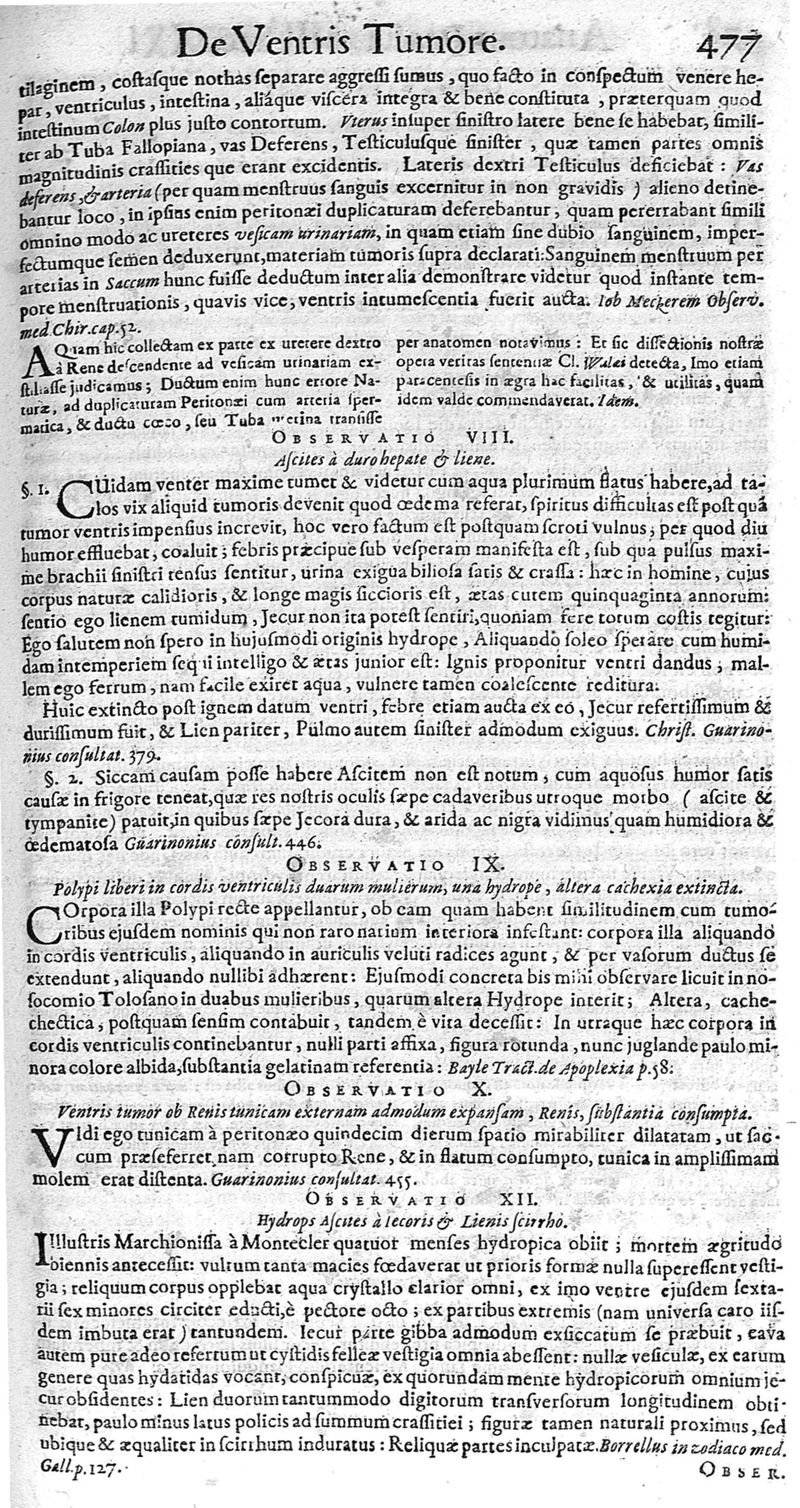 De Ventris Tumore. 477
tilaginem, costasque nothas separare aggressi sumus, quo facto in conspectum venere he-
par, ventriculus, intestina, aliáque viscera integra & bene constituta, præterquam quod
intestinum Colon plus justo contortum. Vterus insuper sinistro latere bene se habebat, simili-
ter ab Tuba Fallopiana, vas Deferens, Testiculusque sinister, quæ tamen partes omnis
magnitudinis crassities que erant excidentis. Lateris dextri Testiculus deficiebat: Vas
deferens, & arteria (per quam menstruus sanguis excernitur in non gravidis) alieno detine-
bantur loco, in ipsius enim peritonæi duplicaturam deferebantur, quam pererrabant simili
omnino modo ac ureteres vesicam urinariam, in quam etiam sine dubio sanguinem, imper-
fectumque semen deduxerunt, materiam tumoris supra declarati: Sanguinem menstruum per
arterias in Saccum hunc fuisse deductum inter alia demonstrare videtur quod instante tem-
pore menstruationis, quavis vice, ventris intumescentia fuerit aucta. Iob Meckerem Observ.
med. Chir. cap. 52.
AQuam hic collectam ex parte ex uretere dextro
à Rene descendente ad vesicam urinariam ex-
stillasse judicamus; Ductum enim hunc errore Na-
turæ, ad duplicaturam Peritonæi cum arteria sper-
matica, & ductu cœco, seu Tuba uterina transisse
per anatomen notavimus: Et sic dissectionis nostræ
opera veritas sententiæ Cl. Walæi detecta, Imo etiam
paracentesis in ægra hac facilitas, & utilitas, quam
idem valde commendaverat. Idem.
OBSERVATIO VIII.
Ascites à duro hepate & liene.
§. 1. CUidam venter maxime tumet & videtur cum aqua plurimum flatus habere, ad ta-
los vix aliquid tumoris devenit quod œdema referat, spiritus difficultas est post quã
tumor ventris impensius increvit, hoc vero factum est postquam scroti vulnus, per quod diu
humor effluebat, coaluit; febris præcipue sub vesperam manifesta est, sub qua pulsus maxi-
me brachii sinistri tensus sentitur, urina exigua biliosa satis & crassa: hæc in homine, cujus
corpus naturæ calidioris, & longe magis siccioris est, ætas autem quinquaginta annorum:
sentio ego lienem tumidum, Jecur non ita potest sentiri, quoniam fere totum costis tegitur:
Ego salutem non spero in hujusmodi originis hydrope, Aliquando soleo sperare cum humi-
dam intemperiem sequi intelligo & ætas junior est: Ignis proponitur ventri dandus; mal-
lem ego ferrum, nam facile exiret aqua, vulnere tamen coalescente reditura.
Huic extincto post ignem datum ventri, febre etiam aucta ex eo, Jecur refertissimum &
durissimum fuit, & Lien pariter, Pulmo autem sinister admodum exiguus. Christ. Guarino-
nius consultat. 379.
§. 2. Siccam causam posse habere Ascitem non est notum, cum aquosus humor satis
causæ in frigore teneat, quæ res nostris oculis sæpe cadaveribus utroque morbo (ascite &
tympanite) patuit, in quibus sæpe Jecora dura, & arida ac nigra vidimus quam humidiora &
œdematosa Guarinonius consult. 446.
OBSERVATIO IX.
Polypi liberi in cordis ventriculis duarum mulierum, una hydrope, altera cachexia extincta.
COrpora illa Polypi recte appellantur, ob eam quam habent similitudinem cum tumo-
ribus ejusdem nominis qui non raro narium interiora infestant: corpora illa aliquando
in cordis ventriculis, aliquando in auriculis veluti radices agunt, & per vasorum ductus se
extendunt, aliquando nullibi adhærent: Ejusmodi concreta bis mihi observare licuit in no-
socomio Tolosano in duabus mulieribus, quarum altera Hydrope interiit; Altera, cache-
chectica, postquam sensim contabuit, tandem è vita decessit: In utraque hæc corpora in
cordis ventriculis continebantur, nulli parti affixa, figura rotunda, nunc juglande paulo mi-
nora colore albida, substantia gelatinam referentia: Bayle Tract. de Apoplexia p. 58.
OBSERVATIO X.
Ventris tumor ob Renis tunicam externam admodum expansam, Renis, substantia consumpta.
VIdi ego tunicam à peritonæo quindecim dierum spatio mirabiliter dilatatam, ut sac-
cum præseferret, nam corrupto Rene, & in flatum consumpto, tunica in amplissimam
molem erat distenta. Guarinonius consultat. 455.
OBSERVATIO XII.
Hydrops Ascites à Iecoris & Lienis scirrho.
IIlustris Marchionissa à Montecler quatuor menses hydropica obiit; mortem ægritudo
biennis antecessit: vultum tanta macies fœdaverat ut prioris formæ nulla superessent vesti-
gia; reliquum corpus opplebat aqua crystallo clarior omni, ex imo ventre ejusdem sexta-
rii sex minores circiter educti, è pectore octo; ex partibus extremis (nam universa caro iis-
dem imbuta erat) tantundem. Iecur parte gibba admodum exsiccatum se præbuit, cava
autem pure adeo refertum ut cystidis felleæ vestigia omnia abessent: nullæ vesiculæ, ex earum
genere quas hydatidas vocant, conspicuæ, ex quorundam mente hydropicorum omnium je-
cur obsidentes: Lien duorum tantummodo digitorum transversorum longitudinem obti-
nebat, paulo minus latus policis ad summum crassitiei; figuræ tamen naturali proximus, sed
ubique & æqualiter in scirrhum induratus: Reliquæ partes inculpatæ. Borrellus in zodiaco med.
Gall. p. 127.
OBSER.